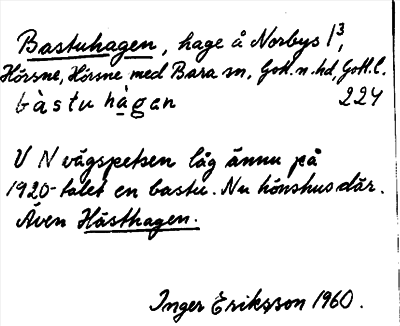 Bastuhagen, hage å Norbys 1³,
Hörsne, Hörsne med Bara sn, Gotl. n. hd, Gotl. l.
bàstu hàgan 224
V N vägspetsen låg ännu på
1920-talet en bastu. Nu hönshus där.
Även Hästhagen.
Inger Eriksson 1960.